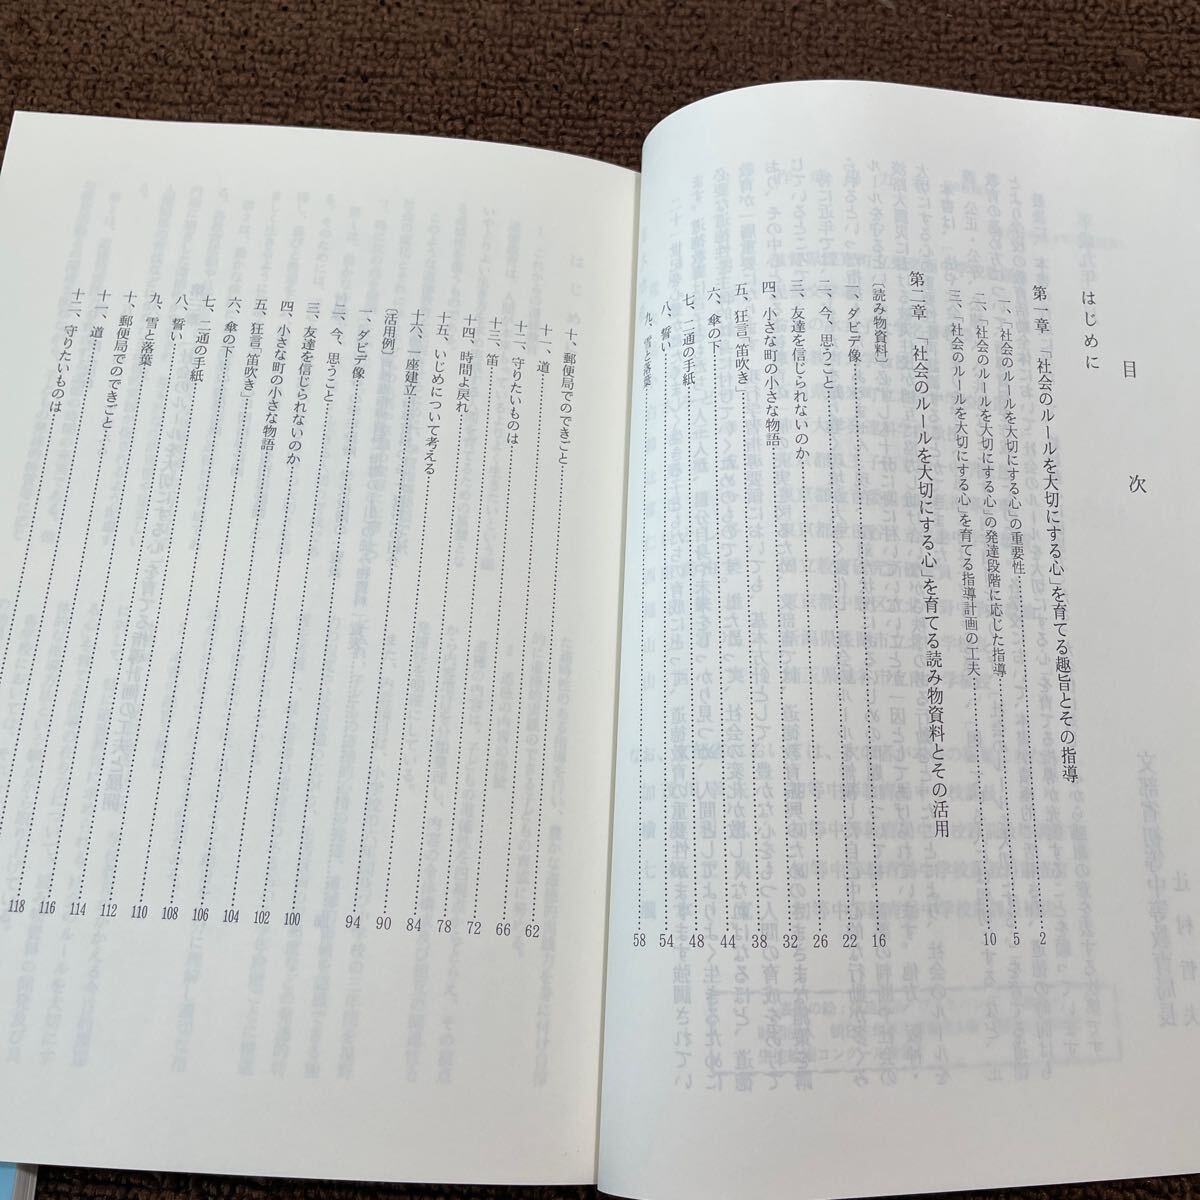 目次
はじめに
第一章 「社会のルールを大切にする心」を育てる趣旨とその指導
一、「社会のルールを大切にする心」の重要性……2
二、「社会のルールを大切にする心」の発達段階に応じた指導……5
三、「社会のルールを大切にする心」を育てる指導計画の工夫……10
第二章 「社会のルールを大切にする心」を育てる読み物資料とその活用
〔読み物資料〕
一、ダビデ像……16
二、今、思うこと……22
三、友達を信じられないのか……26
四、小さな町の小さな物語……32
五、狂言「笛吹き」……38
六、傘の下……44
七、二通の手紙……48
八、誓い……54
九、雪と落葉……58
十、郵便局でのできごと……62
十一、道……66
十二、守りたいものは……72
十三、笛……78
十四、時間よ戻れ……84
十五、いじめについて考える……90
十六、一座建立……94
〔活用例〕
一、ダビデ像……100
二、今、思うこと……102
三、友達を信じられないのか……104
四、小さな町の小さな物語……106
五、狂言「笛吹き」……108
六、傘の下……110
七、二通の手紙……112
八、誓い……114
九、雪と落葉……116
十、郵便局でのできごと……118
十一、道……
十二、守りたいものは……